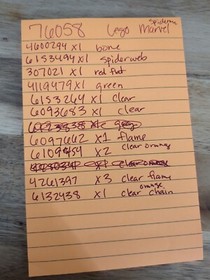 Spiderman
76058 Lego Marvel
4600294 x1 bone
6153494 x1 spiderweb
307021 x1 red flat
4119479 x1 green
6153264 x1 clear
6093683 x1 clear
6097662 x1 flame
6109454 x2 clear orange
4261397 x3 clear flame
orange
6132438 x1 clear chain